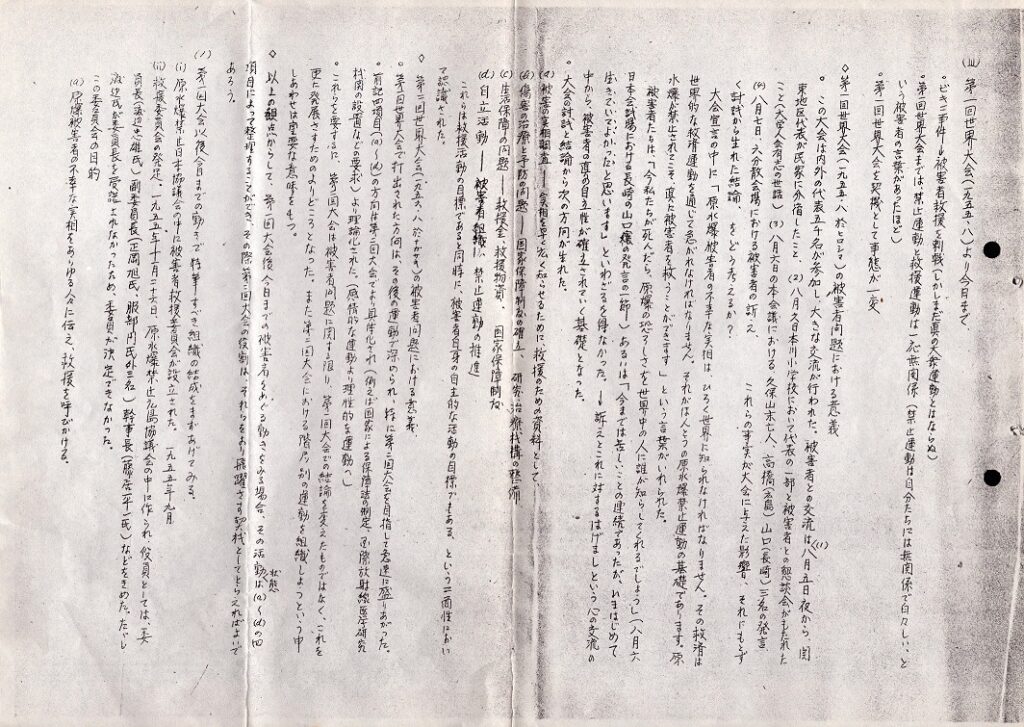 (iii) 第一回世界大会(一九五五・八)より今日まで
。ビキニ事件→被害者救援を刺戟(しかしまだ真の大衆運動とはならぬ)
。第一回世界大会までは、禁止運動と救援運動は一応無関係(禁止運動は自分たちには無関係で白々しい、と
いう被害者の言葉があったほど)
。第一回世界大会を契機として事態が一変
◇ 第一回世界大会(一九五五・八 於ヒロシマ)の被害者問題における意義
。この大会は内外の代表五千名が参加し、大きな交流が行われた。被害者との交流は(1)八月五日夜から、関
東地区代表が民家に外宿したこと、(2)八月 日本川小学校において代表の一部と被害者との懇談会がもたれた
こと(大会人会有志の世話) (3)八月六日の本会議における、久保山未亡人、高橋(広島)山口(長崎)三名の発言
(4)八月七日、六分散会場における被害者の訴え これらの事実が大会に与えた影響、それにもとず
く討議から生れた結論、をどう考えるか?
大会宣言の中に「原水爆被害者の不幸な実相は、ひろく世界に知られなければなりません。その救済は
世界的な救済運動を通じて急がれなければなりません。それがほんとうの原水爆禁止運動の基礎であります。原
水爆が禁止されてこそ、真に被害者を救うことができます」という言葉がいれられた。
被害者たちは「今私たちが死んだら、原爆の恐ろしさを世界中の人に誰が知らしてくれるでしょうし(八月六
日本会議場における長崎の山口 の発言の一節)あるいは「今までは苦しいことの連続であったが、いまはじめて
生きていてよかったと思います」といわざるを得なかった。→訴えとこれに対するはげましという心の交流の
中から、被害者の真の自主性が確立されていく基礎となった。
。大会の討議と結論から次の方向が生れた。
(a) 被害の実相調査――実相を早く広く知らせるために、救援のための資料として、
(b) 傷害の治療と予防の問題――医療保障制度の確立、研究治療機構の整備
(c) 生活保障の問題――救援金、救援物資、国家保障制度
(d) 自立活動――被害者組織、禁止運動の推進
これらは救援活動の目標であると同時に、被害者自身の自主的な活動の目標でもある、という二面性におい
て認識された。
◇ 第二回世界大会(一九五六・八 於ナガサキ)の被害者問題における意義
。第一回世界大会で打出された方向は、その後の運動で深められ、特に第二回大会を目指して急速に盛りあがった。
。前記四項目(a)~(d)の方向は第二回大会でより具体化され(例えば国家による保障法の制定、国際放射線医学研究
機関の設置などの要求)より理論化された。(感情的な運動より理性的な運動へ)
。これらを要するに、第二回大会は被害者問題に関する限り、第一回大会での結論を変えたものではなく、これを
更に発展さすためのよりどころとなった。また第二回大会における階層別の運動を組織しようという申
しあわせは重要な意味をもつ。
◇ 以上の観点からして、第一回大会後今日までの被害者をめぐる動きをみる場合、その活動状態は(a)~(d)の四
項目によって整理することができ、その際第二回大会の役割は、それらをより飛躍さす契機としてとらえればよいで
あろう。
(1) 第一回大会以後今日までの動きで特筆すべき組織の結成をまずあげてみる。
(i) 原水爆禁止日本協議会の発足、一九五五年九月
(ii) 救援委員会の発足。一九五五年十一月二十六日、原水爆禁止広島協議会の中に被害者救援委員会が設立された。役員としては、委
員長(渡辺忠雄氏)副委員長(正岡旭氏、服部円氏外三名)幹事長(藤居平一氏)などをきめた。ただし
渡辺氏が委員長を受諾されなかったため、委員が決定できなかった。
この委員会の目的
(a) 原爆被害者の不幸な実相をあらゆる人々に伝え、救援を呼びかける。